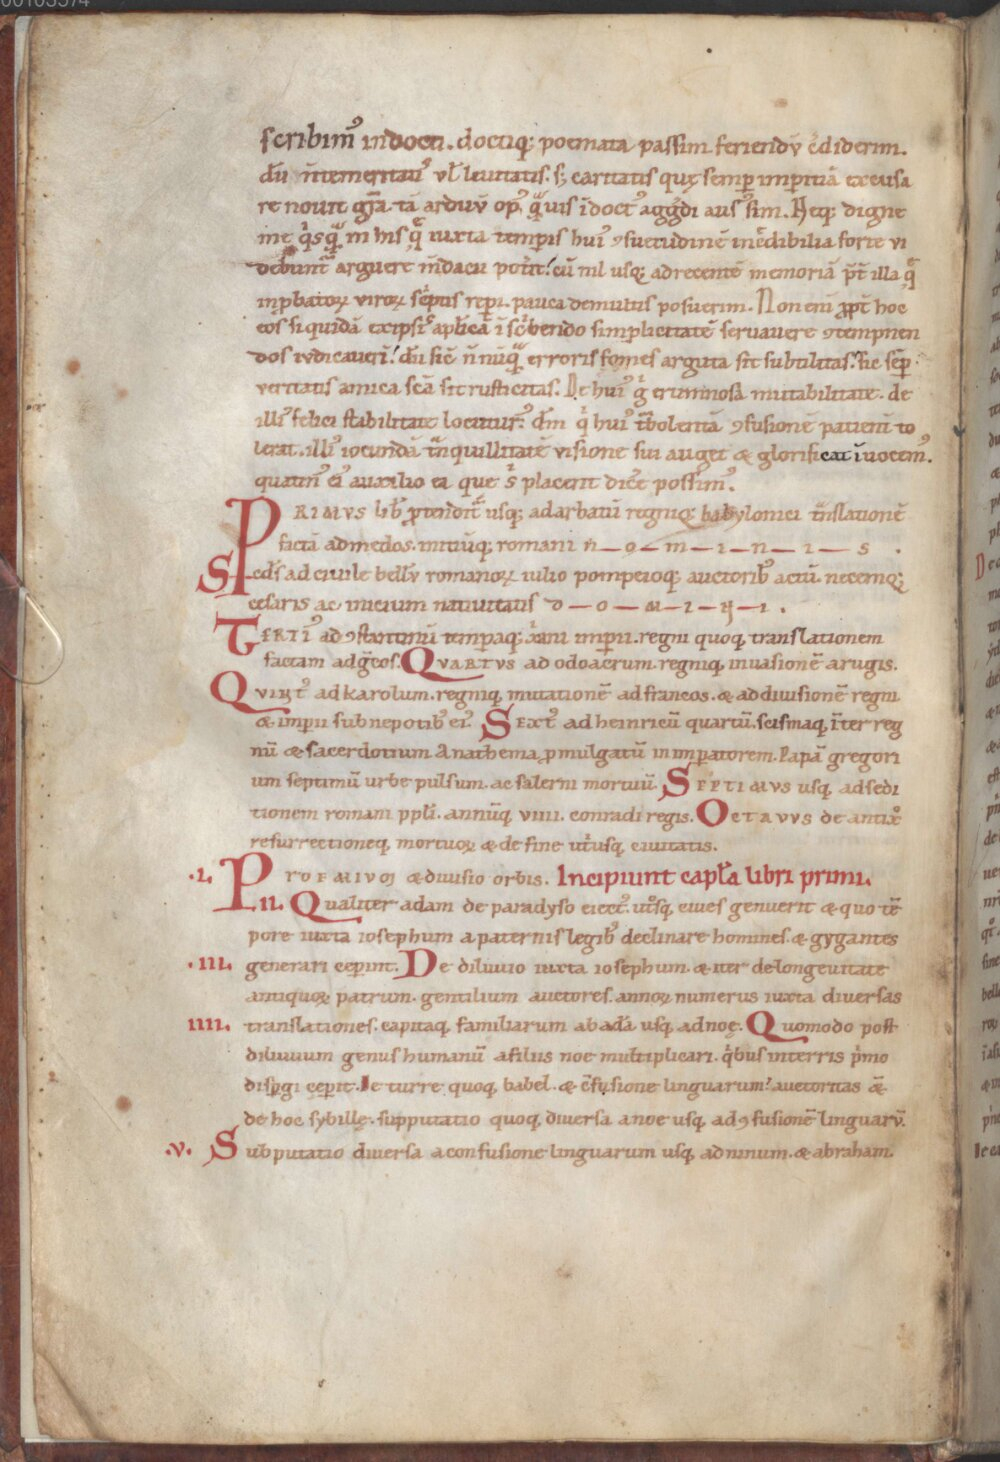 scribim᷒ indocti. doctiq; poemata passim feriendū ēdiderim.
dū n̄ temeritati᷒ vł leuitatis. s; caritatis quę semp̄ imp̄itiā excusa
re nouit gr̄a. tā arduū op᷒ q̄uis īdoct᷒ aggͥdi aus᷒ sim. Neq; digne
me qͥsq̄ in his q̄ iuxta temporis hui᷒ ꝯsuetudinē incͥdibilia forte vi
debunt᷑ arguere m̄dacii pot̄it! cū mil usq; adrecentē memoriā p̄t illa q̄
inp̄batoꝝ viroꝝ scͥptis rep̄i. pauca demultis posuerim. Non eni ꝓpt hoc
eos siquidā exipsi᷒ aplīcā ī scͥbendo simplicitatē seruauere ꝯtempnen
dos iudicaueri! dū sic n̄ nūq̄ erroris fomes arguta sit subtilitas. sic semp̄
veritatis amica sc̄a sit rusticitas. De hui᷒ gͥ erumnosā mutabilitate. de
illi᷒ felici stabilitate locuturꝰ dm̄ qͥ hui᷒ t̄bolentā ꝯfusionē patient to
lerat. illi᷒ iocundā tn̄quillitatē visione sui auget & glorificat īuocem᷒.
quatin᷒ ei᷒ auxilio ea que sͥ placent dicē possim᷒.
PRIMVS lib̄ ꝓtendit᷑ usq; adarbatū regniq; babylonici tn̄slationē
factā admedos. initiūq; romani n—o—m—i—n—i—s .
Scd̄s ad ciuile bellū romanoꝝ iulio pompeioq; auctorib᷒ actū. necemq;
cesaris ac inicium natiuitatis d—o—m—i—n—i .
TERTI᷒ ad ꝯstantinū tempaq; x̄ani imperii. regni quoq, translationem
factam adgrecos. QVARTVS ad odoacrum. regniq, inuasionē arugis.
QVINT᷒ ad karolum. regniq, mutationē ad francos. & addiuisionē regni
& imperii sub nepotib᷒ ei᷒. SEXT᷒ ad heinricū quartū. scismaq, īter reg
nū & sacerdotium Anathema ꝓmulgatū in imperatorem. Papā gregori
um septimū urbe pulsum. ac salerni mortuū. SEPTIMVS usq, adsedi
tionem romani ppłi. annūq, viiii. conradi regis. OCTAVVS de antixͦ
resurrectioneq, mortuoꝝ & de fine utͥusq, ciuitatis.
·I. PROEMIVM & diuisio orbis. Incipiunt capła libri primi.
II. Qualiter adam de paradyso eiect᷒. utͥsq, ciues genuerit & quo tē
pore iuxta iosephum a paternis legib᷒ declinare homines. & gygantes
·III. generari ceperint. De diluuio iuxta iosephum. & iter de longeuitate
antiquoꝝ patrum. gentilium auctores. annoꝝ numerus iuxta diuersas
IIII. translationes. capitaq, familiarum abadā usq, ad noę. Quomodo post
diluuium genus humanū afiliis noe multiplicari. qͥbus interris pͥmo
disp̄gi cęperit. De turre quoq, babel. & cͦfusione linguarum? auctoritas &̄
de hoc sybillę. supputatio quoq, diuersa anoe usq, ad ꝯfusionē linguarū.
·V. Subputatio diuersa aconfusione linguarum usq, ad ninum. & abraham.